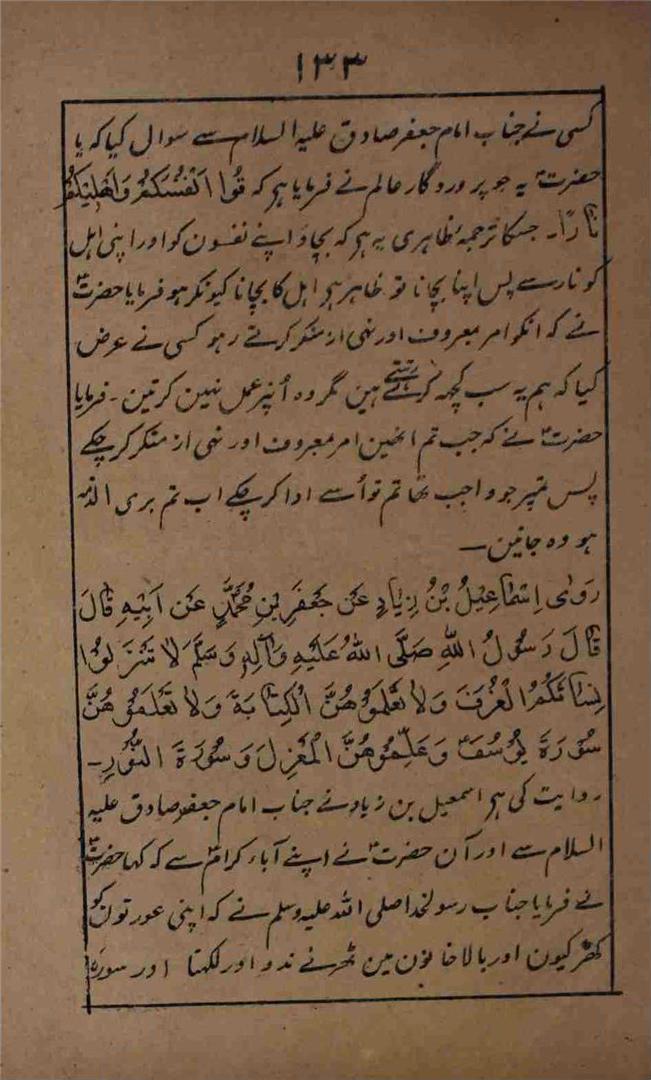 ۱۳۳
کسی نے جناب امام جعفر صادق علیہ السلام سے سوال کیا کہ یا
حضرتؑ یہ جو پروردگار عالم نے فرمایا ہی کہ قُوا اَنْفُسَکُمْ وَاَهْلِیْکُمْ
نَارًا۔ جسکا ترجمۂ ظاہری یہ ہی کہ بچاؤ اپنے نفسون کو اور اپنی اہل
کو نار سے پس اپنا بچانا تو ظاہر ہی اہل کا بچانا کیونکر ہو فرمایا حضرتؑ
نے کہ انکو امر معروف اور نہی از منکر کرتے رہو کسی نے عرض
کیا کہ ہم یہ سب کچھ کرتے رہتے ہین مگر وہ اُنپر عمل نہین کرتین۔ فرمایا
حضرتؑ نے کہ جب تم انھین امر معروف اور نہی از منکر کر چکے
پس تمپر جو واجب تھا تم تو اُسے ادا کر چکے اب تم بری الذمہ
ہو وہ جانین۔
رَوٰی اِسْمَاعِیْلُ بْنُ زِیَادٍ عَنْ جَعْفَرِ بْنِ مُحَمَّدٍ عَنْ اَبِیْهِ قَالَ
قَالَ رَسُوْلُ اللّٰهِ صَلَّی اللّٰهُ عَلَیْهِ وَاٰلِهٖ وَسَلَّمَ لَا تَنْزِلُوْا
نِسَائَکُمُ الْغُرَفَ وَلَا تُعَلِّمُوْهُنَّ الْکِتَابَةَ وَلَا تُعَلِّمُوْهُنَّ
سُوْرَةَ یُوْسُفَ وَعَلِّمُوْهُنَّ الْمِغْزِلَ وَسُوْرَةَ النُّوْرِ۔
روایت کی ہی اسمعیل بن زیاد نے جناب امام جعفر صادق علیہ
السلام سے اور آن حضرتؑ نے اپنے آباء کرامؑ سے کہ کہا حضرتؑ
نے فرمایا جناب رسولخدا صلی اللہ علیہ وسلم نے کہ اپنی عورتون کو
کھڑکیون اور بالاخانون مین ٹھرنے ندو اور لکھنا اور سورہ